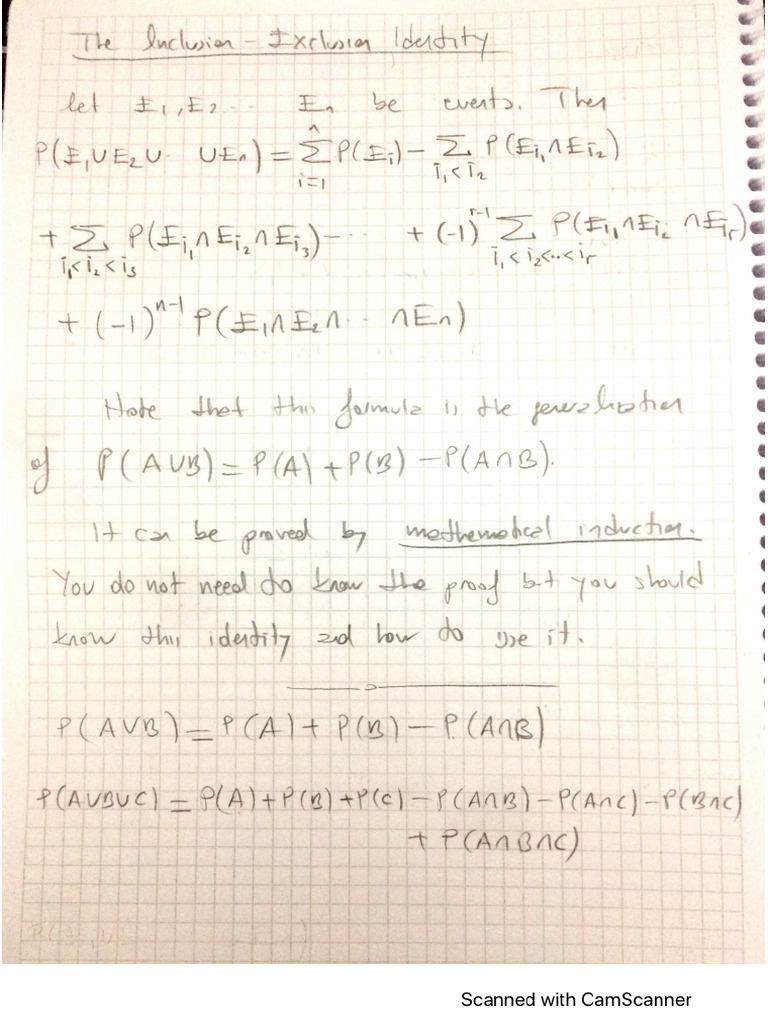 The Inclusion - Exclusion Identity
let E₁, E₂ ... Eₙ be events. Then
P(E₁∪E₂∪ ∪Eₙ) = Σⁿᵢ₌₁ P(Eᵢ) - Σ_{i₁<i₂} P(E_{i₁}∩E_{i₂})
+ Σ_{i₁<i₂<i₃} P(E_{i₁}∩E_{i₂}∩E_{i₃}) - ... + (-1)^{r-1} Σ_{i₁<i₂<..<iᵣ} P(E_{i₁}∩E_{i₂} ∩E_{iᵣ})
+ (-1)^{n-1} P(E₁∩E₂∩.. ∩Eₙ)
Note that this formula is the generalization
of P(A∪B) = P(A) + P(B) - P(A∩B).
It can be proved by mathematical induction.
You do not need to know the proof but you should
know this identity and how to use it.
P(A∪B) = P(A) + P(B) - P(A∩B)
P(A∪B∪C) = P(A) + P(B) + P(C) - P(A∩B) - P(A∩C) - P(B∩C)
+ P(A∩B∩C)
Scanned with CamScanner